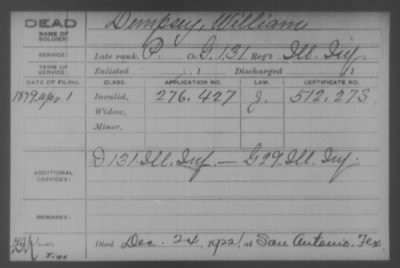 DEAD
NAME OF SOLDIER:
Dempsey, William
SERVICE:
Late rank, P. Co. G. 131 Reg't Ill. Inf.
TERM OF SERVICE:
Enlisted , 1 Discharged , 1
DATE OF FILING. CLASS. APPLICATION NO. LAW. CERTIFICATE NO.
1879, Apr. 1 Invalid, 276,427 J. 512,273
Widow,
Minor,
ADDITIONAL SERVICES:
D 131 Ill. Inf. — G 29 Ill. Inf.
REMARKS:
Died Dec. 24, at San Antonio, Tex.